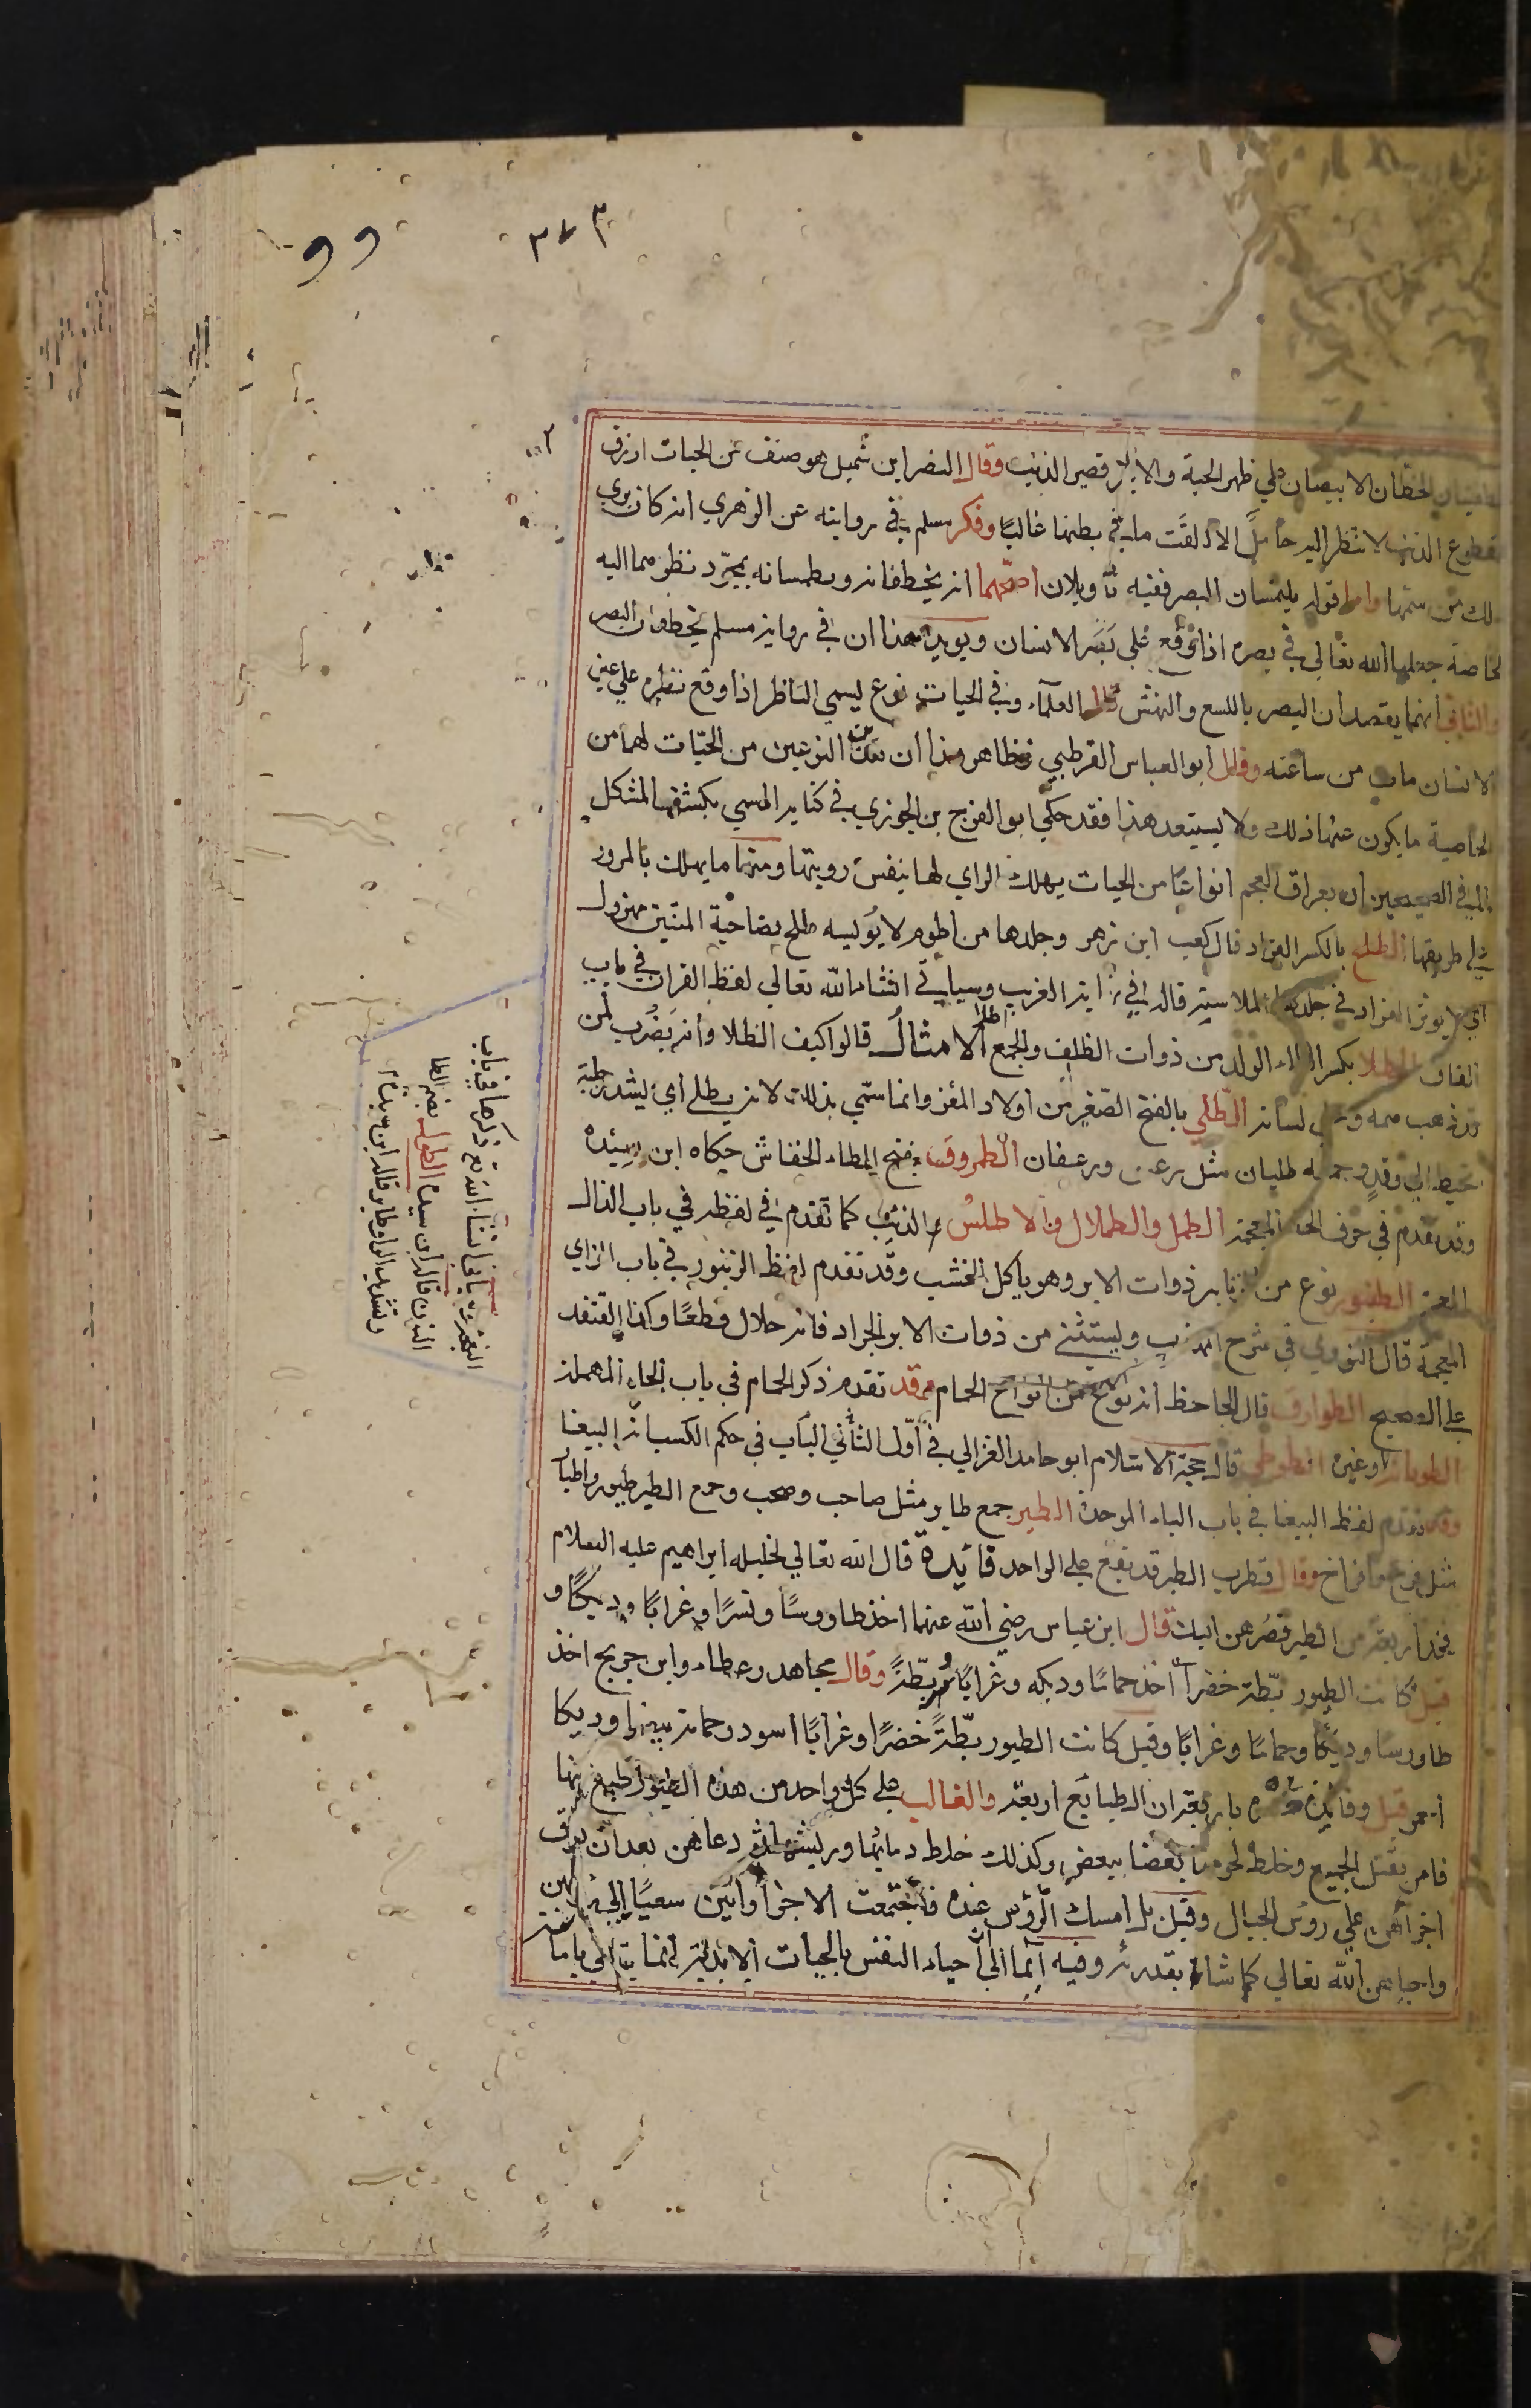 ٣٧٣
٩٩
الخطان الابيضان علي ظهر الحية والابتر قصير الذنب وقال النضر ابن شميل هو صنف من الحيات ازرق
مقطوع الذنب لا تنظر اليه حامل الا القت ما في بطنها غالبًا وذكر مسلم في روايته عن الزهري انه كان يري
ذلك من سمها واما قوله يلتمسان البصر ففيه تأويلان اصحهما انه يخطفانه ويطمسانه بمجرد نظرهما اليه
لخاصة جعلها الله تعالي في بصره اذا وقع علي بصر الانسان ويويد هذا ان في رواية مسلم يخطفان البصر
والثاني انهما يقصدان البصر باللسع والنهش قال العلماء وفي الحيات نوع يسمي الناظر اذا وقع نظره علي عين
الانسان مات من ساعته وقال ابو العباس القرطبي ظاهر هذا ان هذين النوعين من الحيّات لهما من
الخاصية ما يكون عنها ذلك ولا يستبعد هذا فقد حكي ابو الفرج بن الجوزي في كتابه المسمي بكشف المشكل
لما في الصحيحين ان بعراق العجم انواعًا من الحيات يهلك الراي لها بنفس رويتها ومنها ما يهلك بالمرور
علي طريقها الطلح بالكسر القراد قال كعب ابن زهر وجلدها من اطوم لا يوئسه طلح بضاحية المتنين مهزول
اي لا يوثر القراد في جلدها لملاسته قاله في نهاية الغريب وسياتي انشاء الله تعالي لفظ القراد في باب
القاف الطلا بكسر الطاء الولد من ذوات الظلف والجمع اطلا الامثال قالوا كيف الطلا وأمه يضرب لمن
قد ذهب همه وخلي لسانه الطلي بالفتح الصغير من اولاد المعز وانما سمي بذلك لانه يطلي أي يشد رجليه
بخيط الي وتد وجمعه طليان مثل رغيف ورغفان الطمروق بفتح الطاء الخفاش حكاه ابن سيده
وقد تقدم في حرف الخاء المعجمة الطمل والطملال والاطلس الذئب كما تقدم في لفظه في باب الذال
المعجمة الطنبور نوع من الزنابير ذوات الابر وهو ياكل الخشب وقد تقدم لفظ الزنبور في باب الزاي
المعجمة قال النووي في شرح المهذب ويستثني من ذوات الابر الجراد فانه حلال قطعًا وكذا القنفد
علي الصحيح الطوارف قال الجاحظ انه نوع من انواع الحمام وقد تقدم ذكر الحمام في باب الحاء المهملة
الطوبالة وغيره الطوطي قال حجة الاسلام ابو حامد الغزالي في أوّل الثاني الباب في حكم الكسب انه الببغا
وقد تقدم لفظ الببغا في باب الباء الموحدة الطير جمع طاير مثل صاحب وصحب وجمع الطير طيور واطيار
مثل فرخ وافراخ وقال قطرب الطير قد يقع علي الواحد فايدة قال الله تعالي لخليله ابراهيم عليه السلام
فخذ اربعة من الطير فصُرهن اليك قال ابن عباس رضي الله عنهما اخذ طاووسًا ونسرًا وغرابًا وديكًا و
قيل كانت الطيور بطّة خضرا اخذ حمامًا وديكه وغرابًا وبطّةً وقال مجاهد وعطاء وابن جريج اخذ
طاوسا وديكًا وحمامًا وغرابًا وقيل كانت الطيور بطّةً خضرًا وغرابًا اسود وحمامة بيضا وديكا
احمر قيل وفايدة حصره باربعة ان الطبايع اربعة والغالب علي كل واحد من هذه الطيور طبع منها
فامر بقتل الجميع وخلط لحومها بعضا ببعض وكذلك خلط دمائها وريشها ثم دعاهن بعد ان فرق
اجزائهن علي روس الجبال وقيل بل امسك الرؤس عنده فاجتمعت الاجزا وأتين سعيًا اليه
واحياهن الله تعالي كما شاء بقدرته وفيه ايما الي ان احياء النفس بالحيات الابدية انما يتاتي باماتة
النغبرة ياتي انشاء الله تع ذكرها في باب
النون قاله ابن سيده الطول بضم الطا
وتشديد الواو طاير قاله ابن سيده